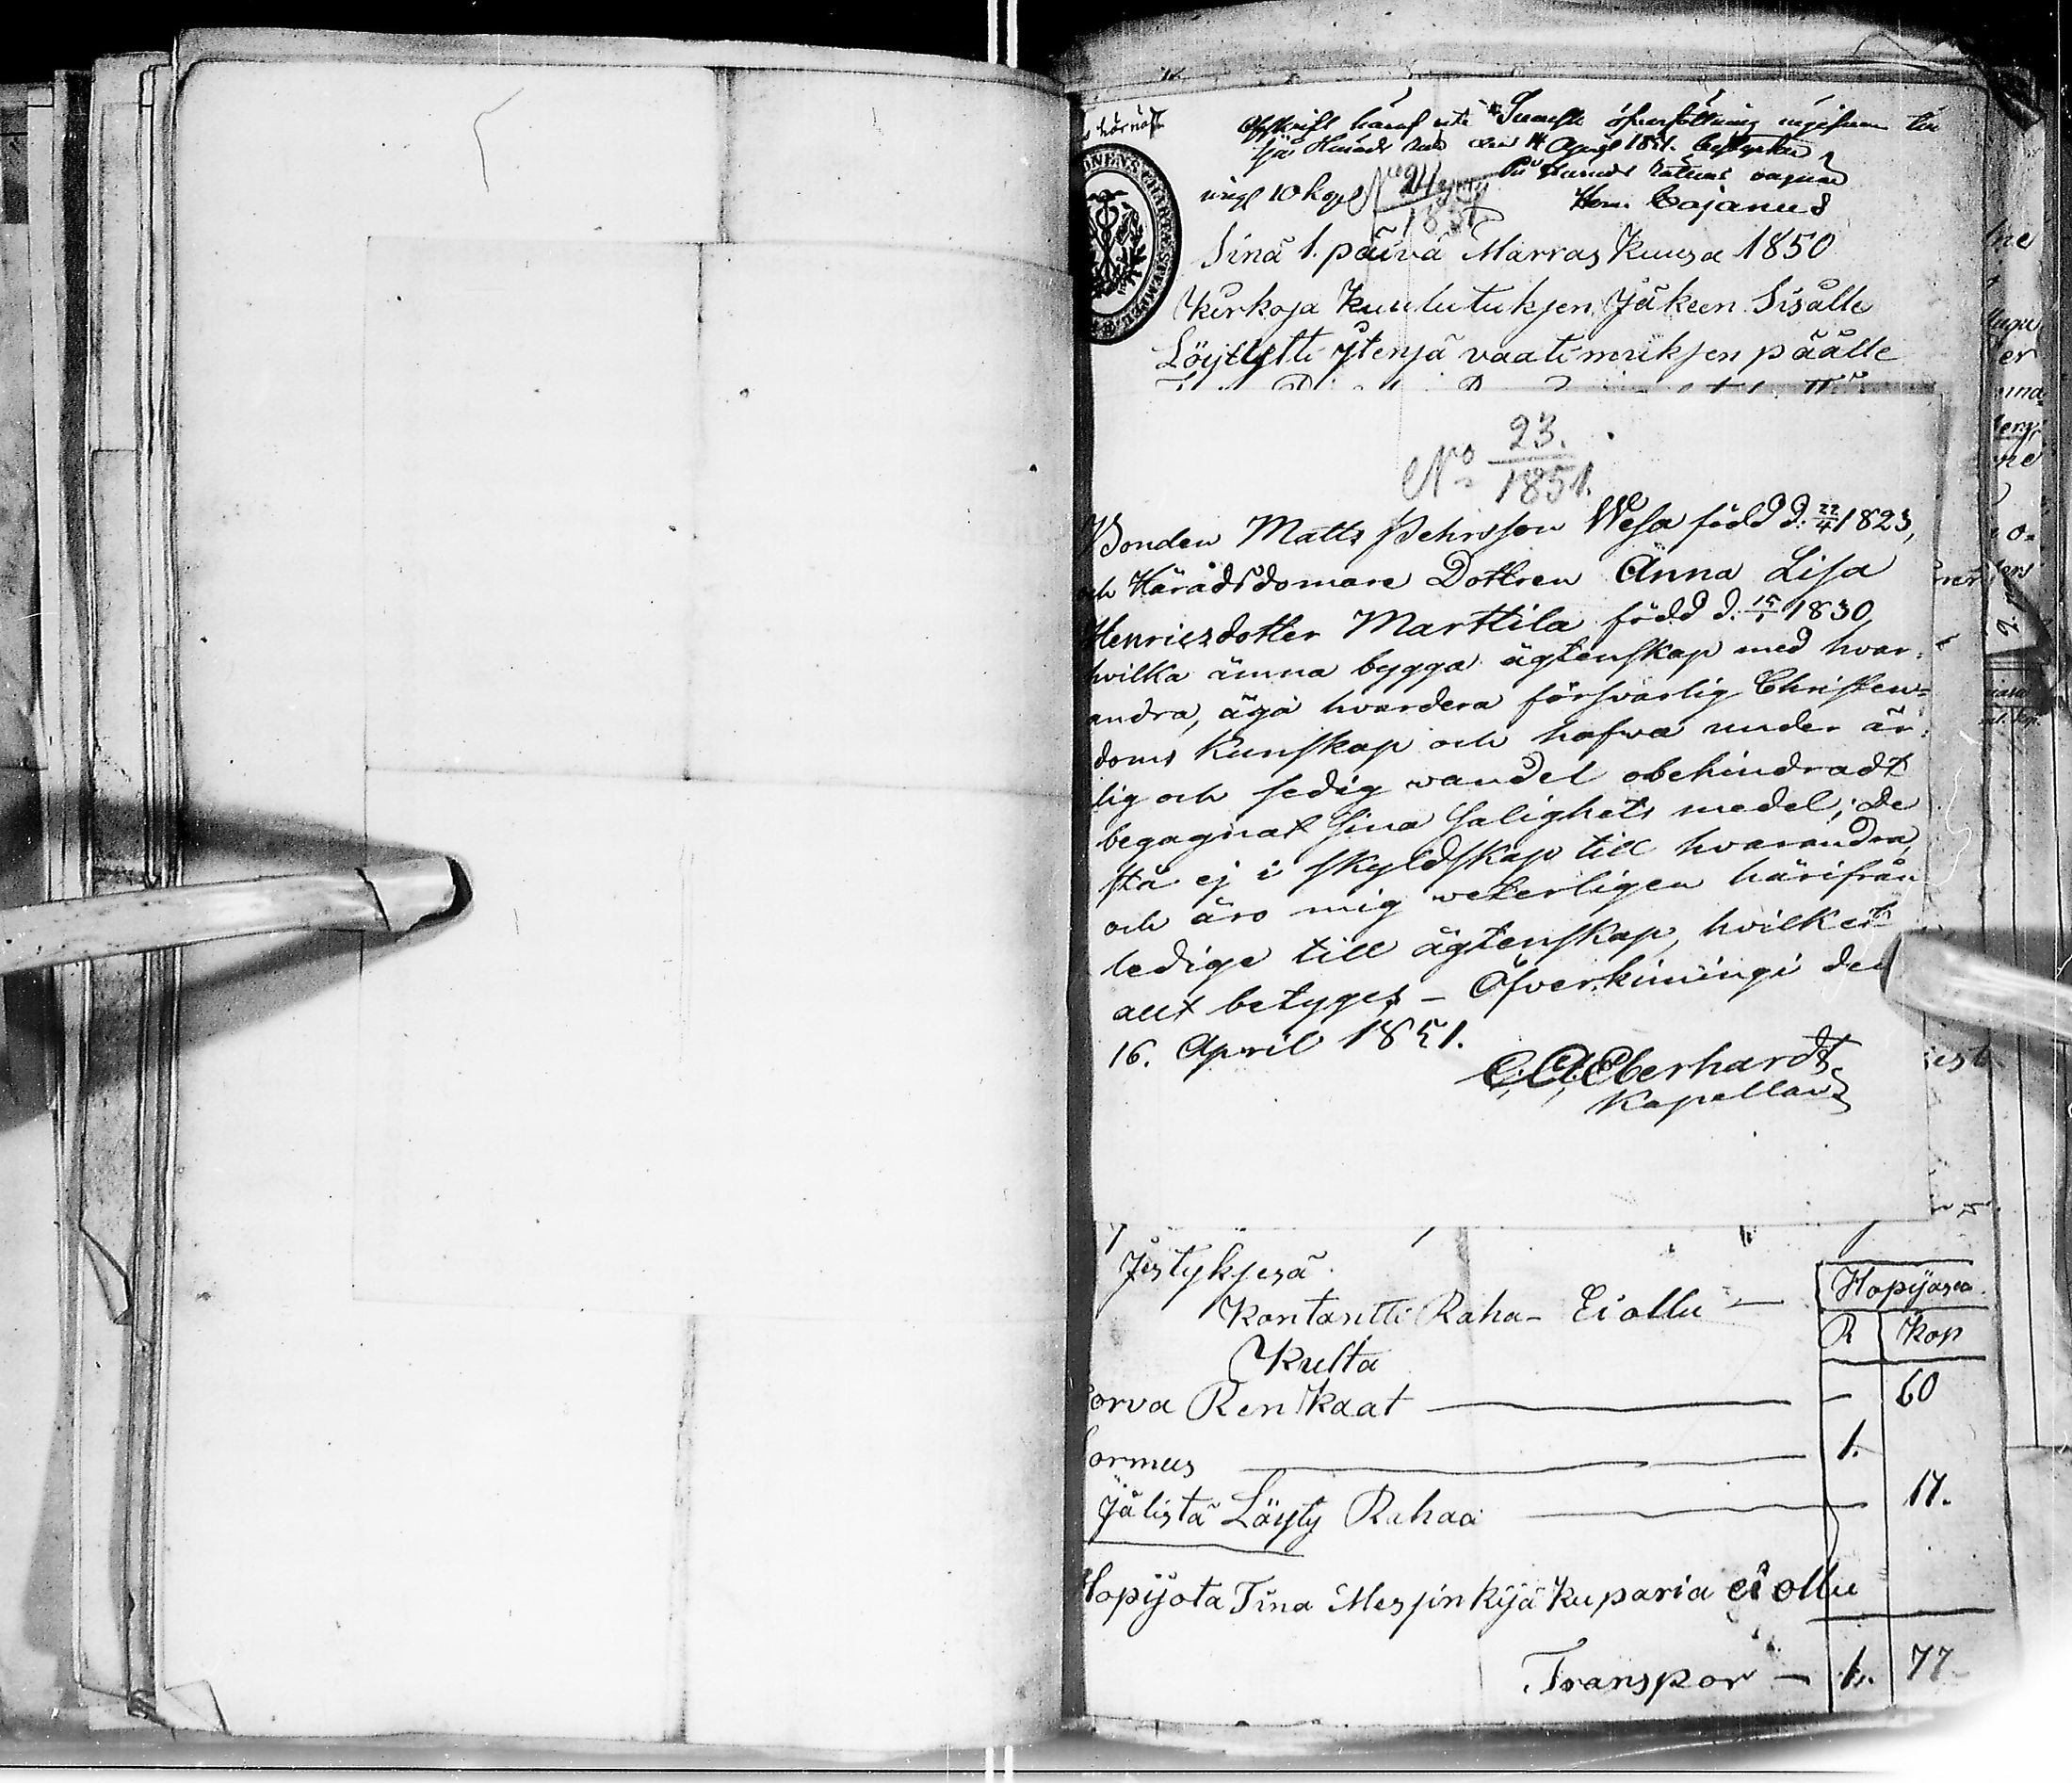 Afskrift häraf uti Finnsk öfversättning ingifven till
sjö Härads Rätt den 14 April 1851. betygar
På Härads Rättens vägnar
Herm Cajanus
10 Kop
No 24
1851
Sinä 1. päivä Marras Kuusa 1850
Kirkosa Kuulutuksen Jäkeen Sisälle
Löytystti ytensä vaatimuksen päälle
No 23.
1851.
Bonden Matts Pehrsson Wesa född d. 22/4 1823,
och Härådsdomare Dottren Anna Lisa
Henricsdotter Marttila född d. 15/1 1830
hvilka ämna bygga ägtenskap med hvar:
andra, äga hvardera försvarlig Christen=
doms Kunskap och hafva under är:
lig och sedig vandel obehindradt
begagnat sina salighets medel; De
stå ej i skyldskap till hvarandra,
och äro mig veterligen härifrån
ledige till ägtenskap, hvilket
allt betyges – Öfverkiimingi den
16. April 1851.
C. A. Eberhardt
Kapellan
Jästyksesä
Hopijasa
Kontantti Raha – Ei ollu —
R Kop
Kulta
orva Renkaat — – 60
ormus — 1.
Jälistä Löyty Rahaa — 17.
Hopijota Tina Messinkijä Kuparia ei ollu
Transpor — 1. 77